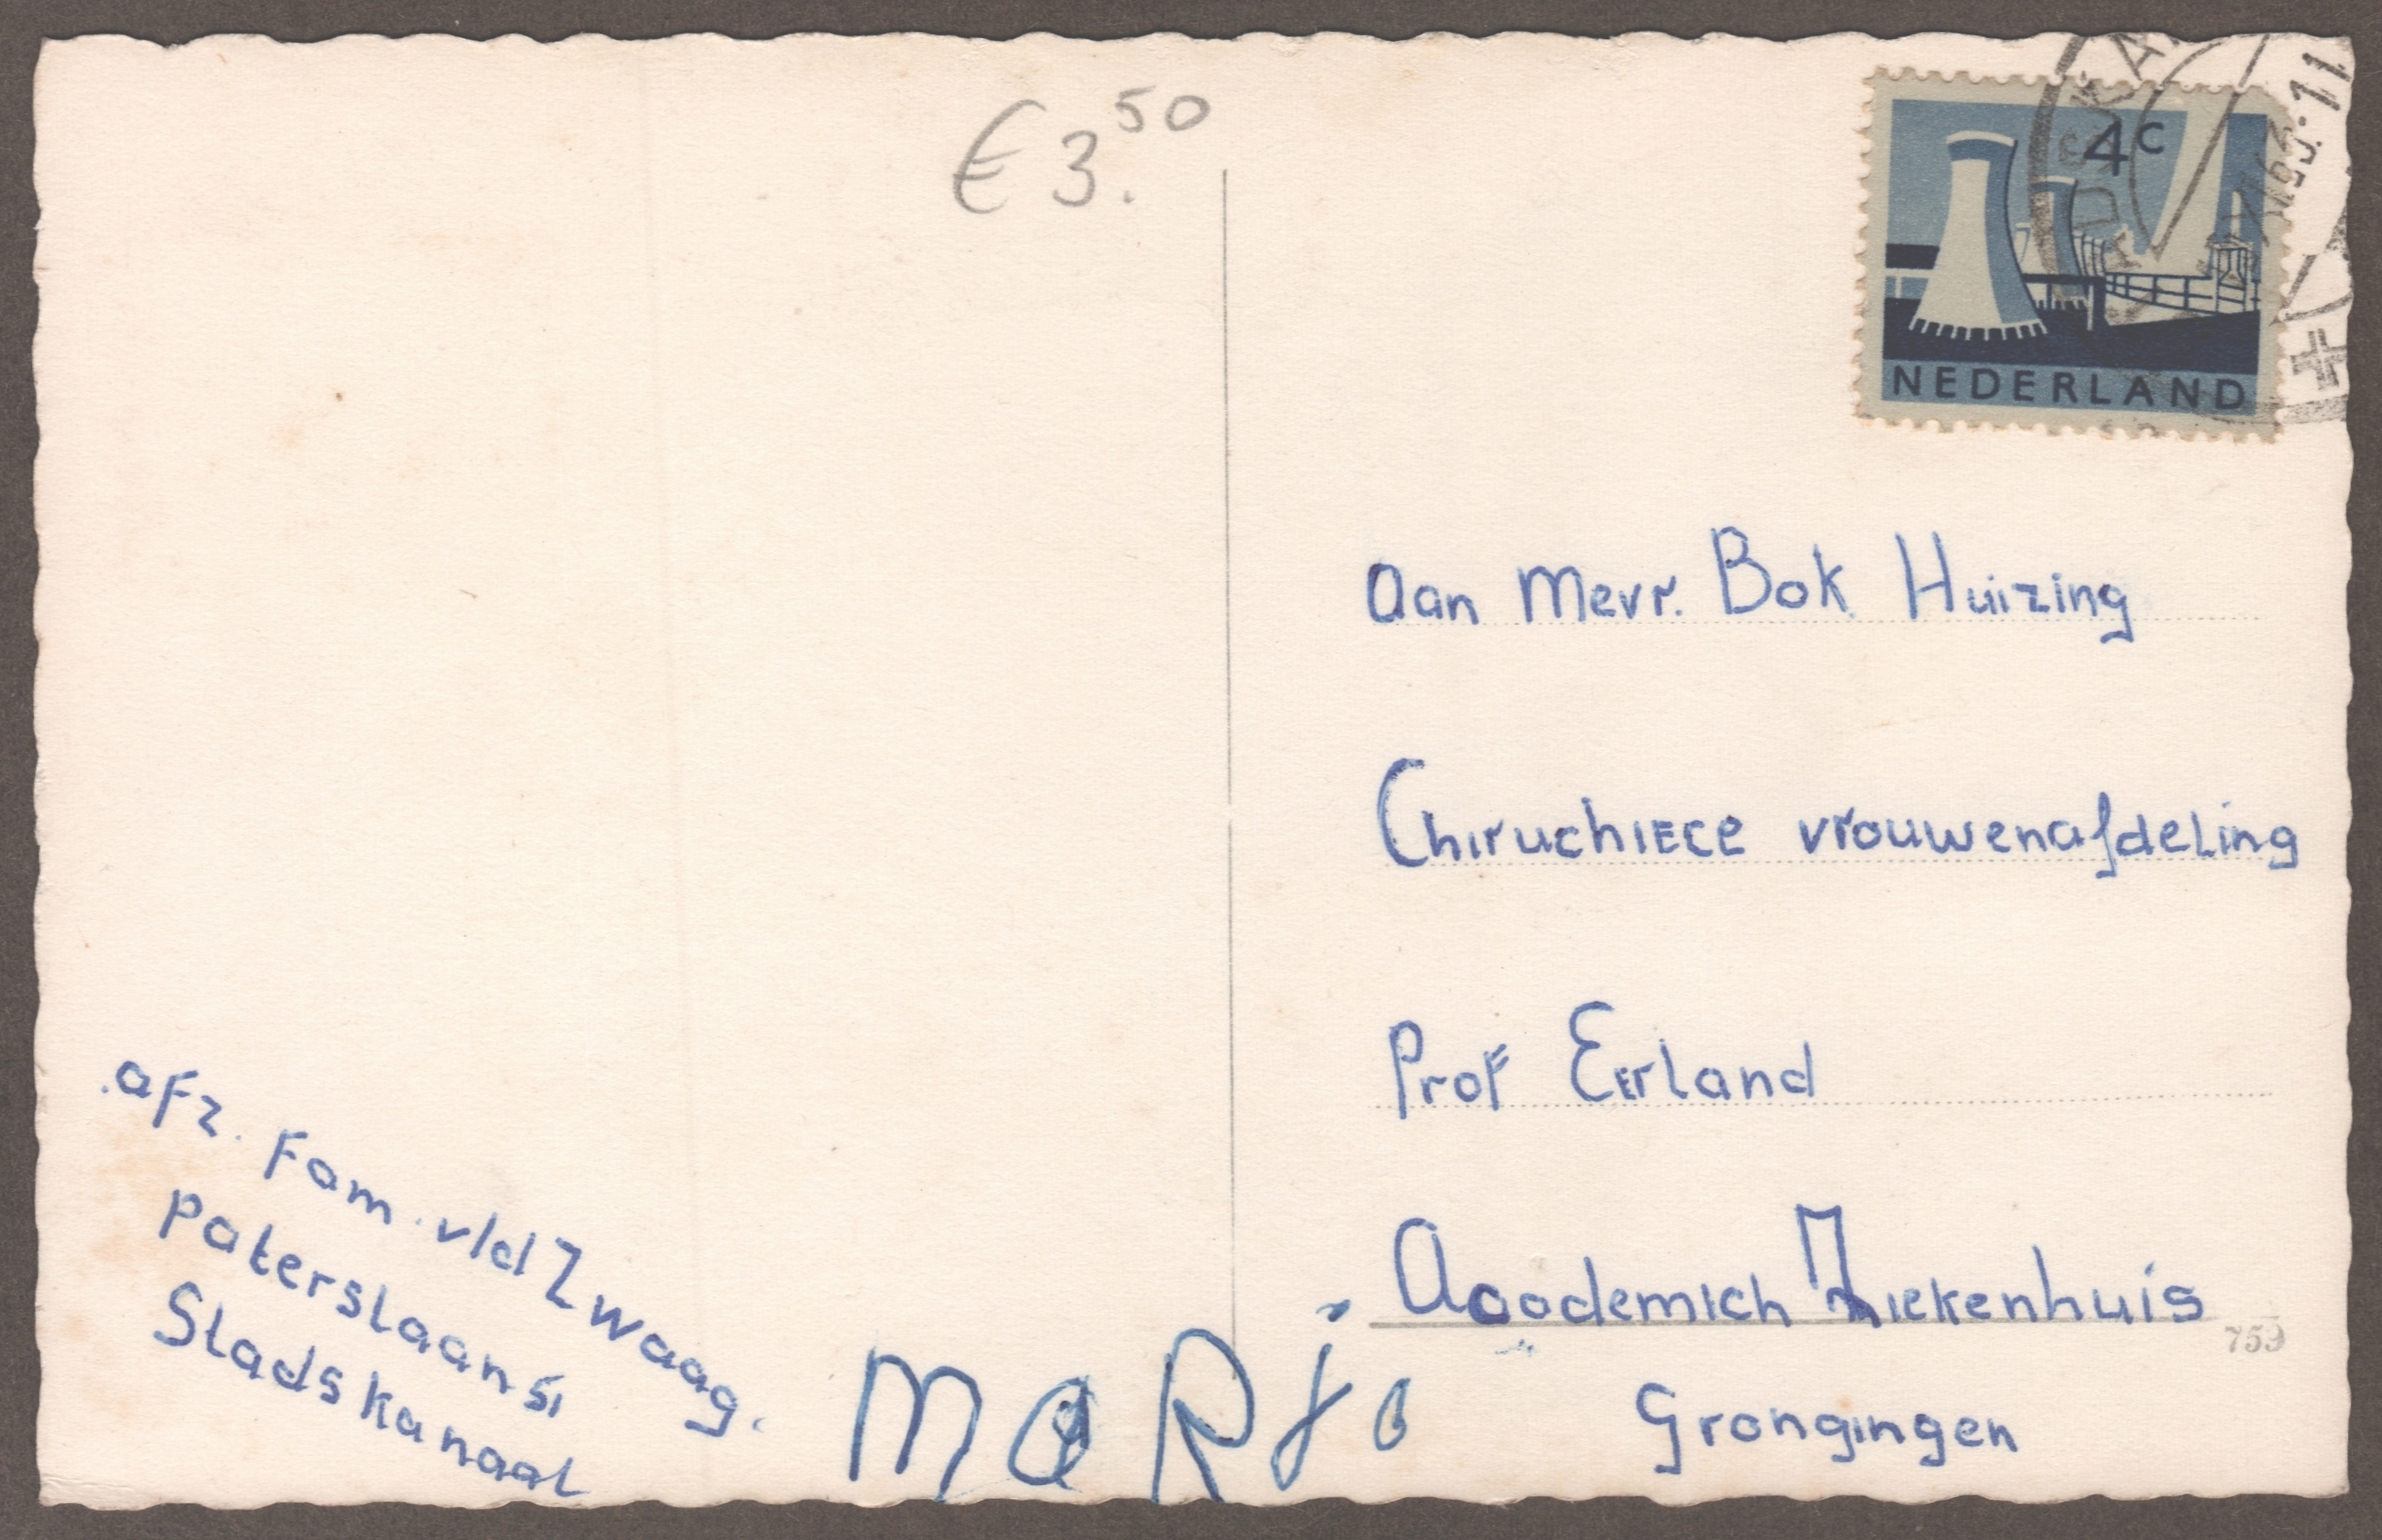 € 3.50
4c
NEDERLAND
Aan Mevr. Bok Huizing
Chiruchiece vrouwenafdeling
Prof Eerland
Acodemich Ziekenhuis
759
Grongingen
afz. Fam. v/d Zwaag.
Paterslaan 51
Stadskanaal
MaRjo